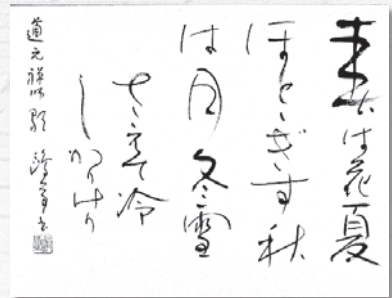 春は花夏
ほとゝぎす秋
は月冬雪
さえて冷
しかりけり
道元禅師歌